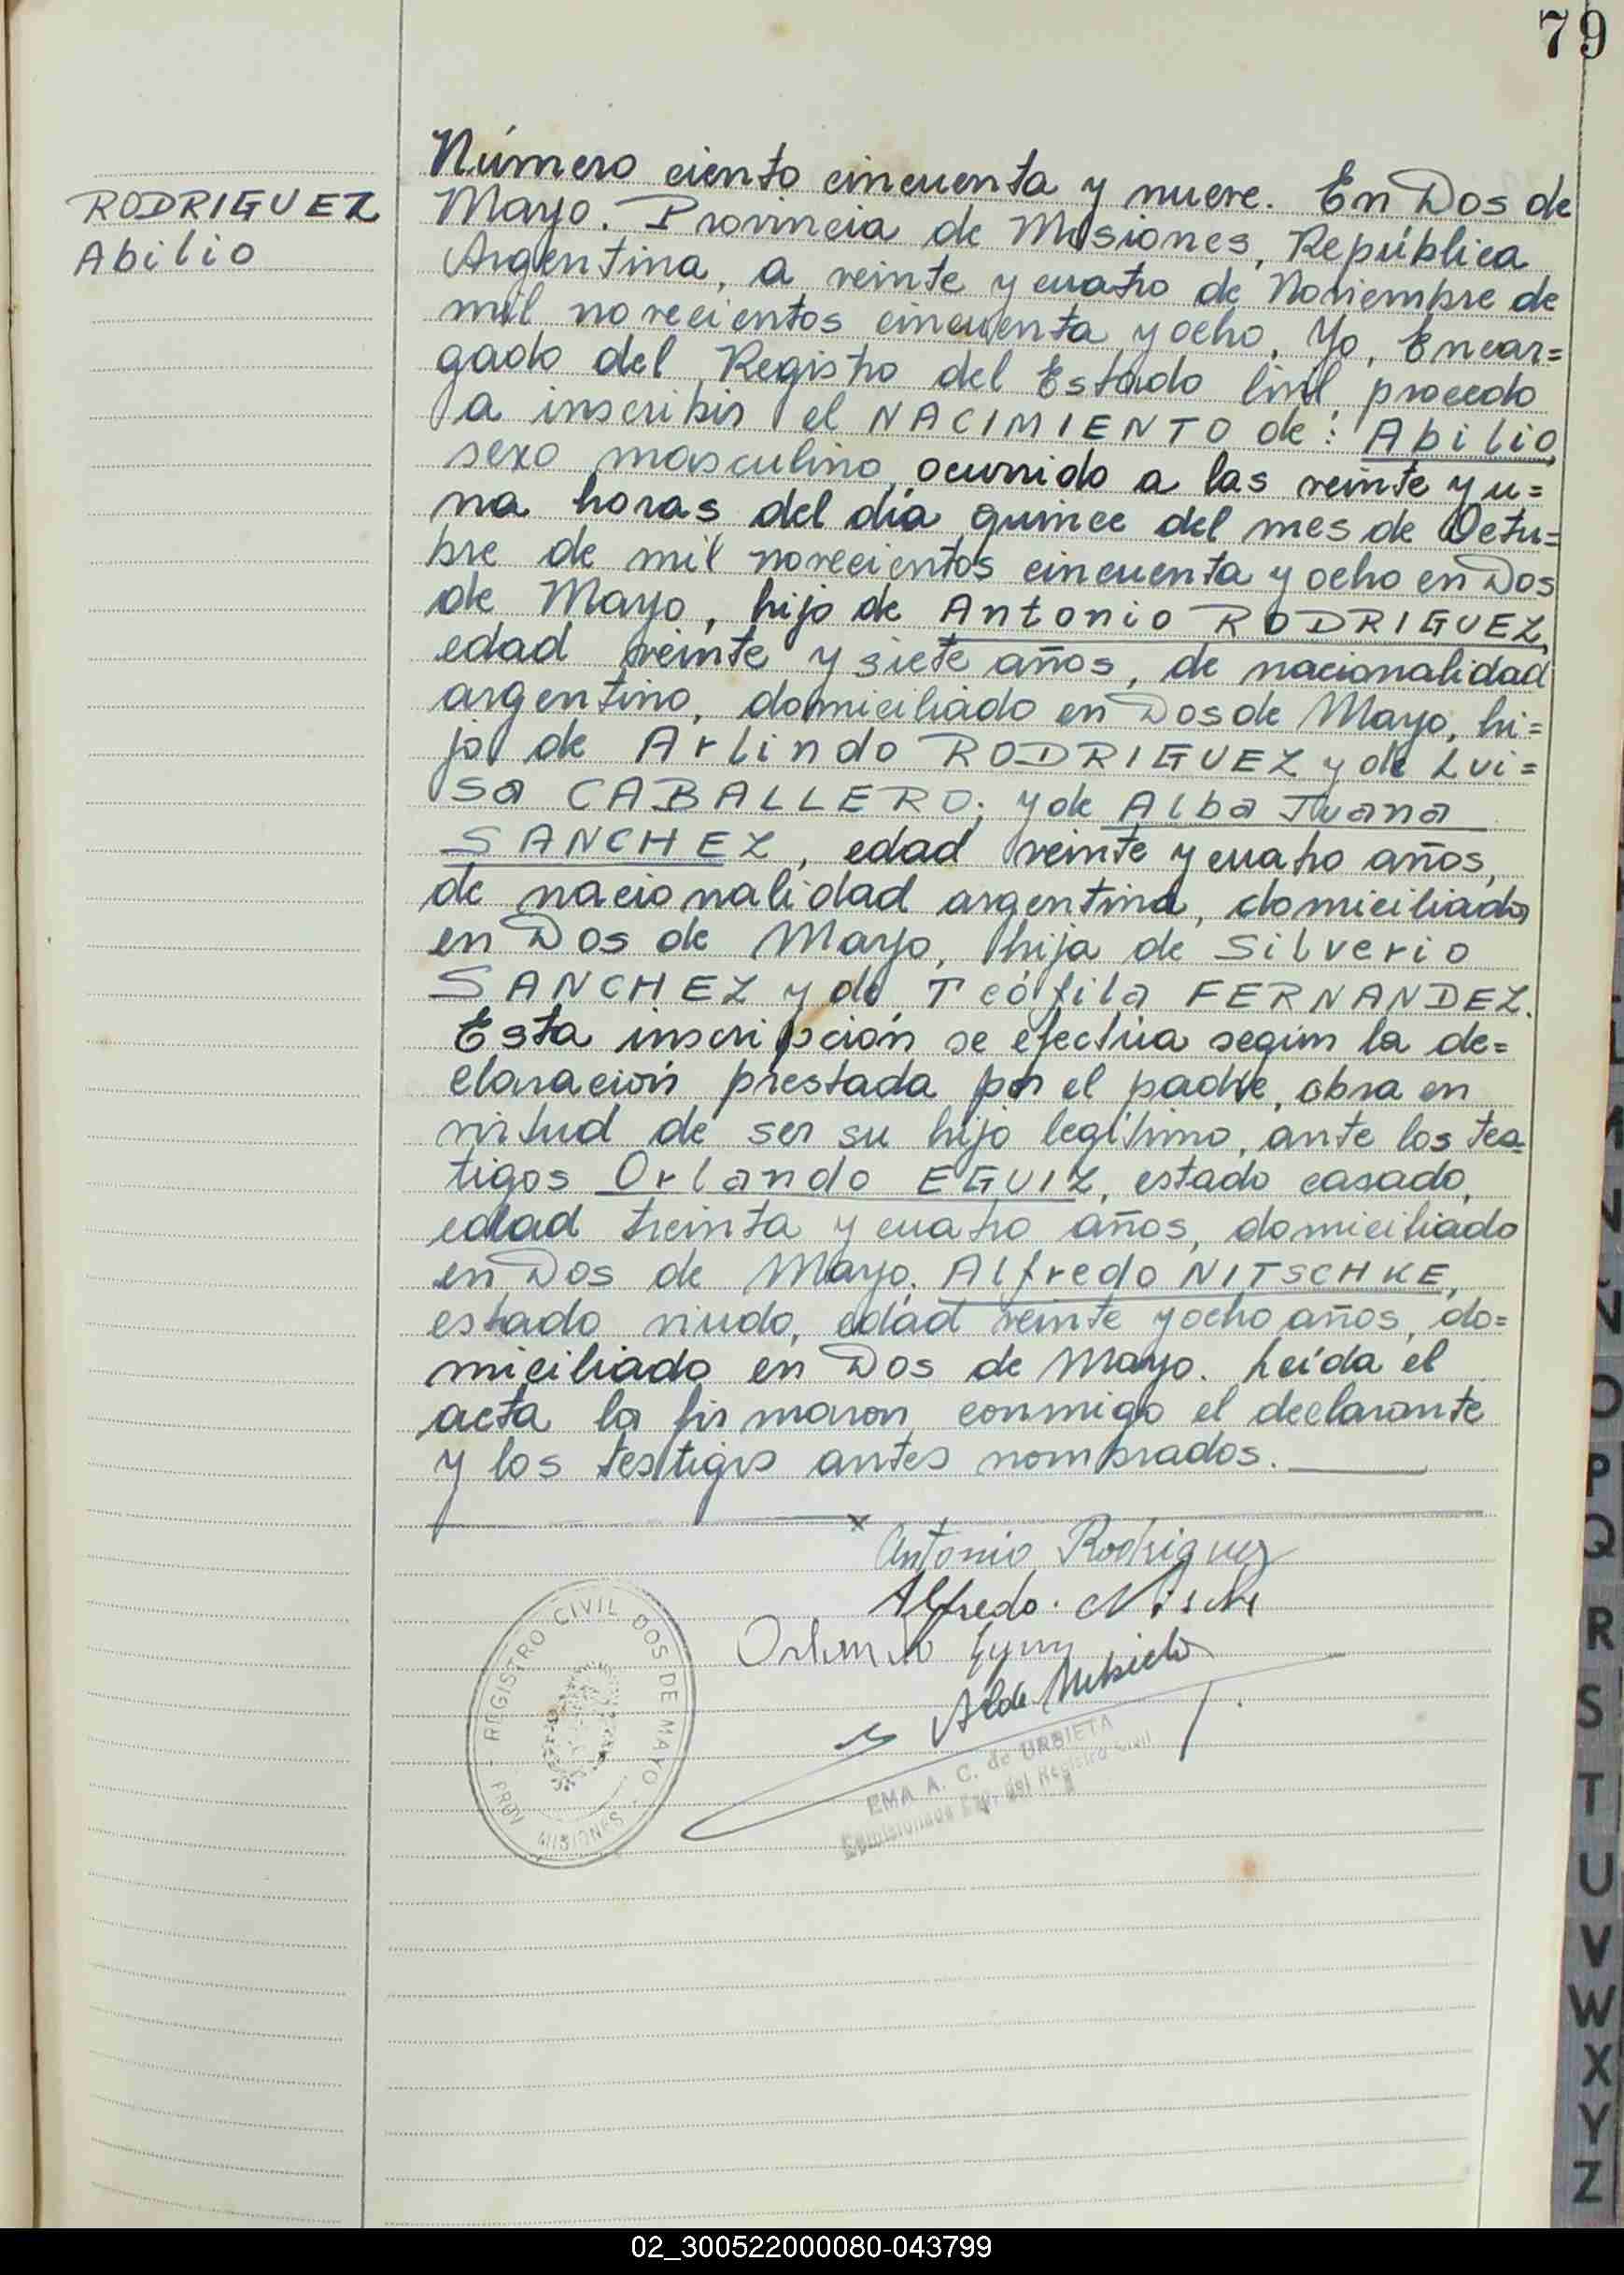 79
RODRIGUEZ
Abilio
Número ciento cincuenta y nueve. En Dos de
Mayo. Provincia de Misiones, República
Argentina, a veinte y cuatro de Noviembre de
mil novecientos cincuenta y ocho, Yo, Encar=
gado del Registro del Estado Civil, procedo
a inscribir el NACIMIENTO de: Abilio,
sexo masculino, ocurrido a las veinte y u=
na horas del día quince del mes de Octu=
bre de mil novecientos cincuenta y ocho en Dos
de Mayo, hijo de Antonio RODRIGUEZ,
edad veinte y siete años, de nacionalidad
argentino, domiciliado en Dos de Mayo, hi=
jo de Arlindo RODRIGUEZ y de Lui=
sa CABALLERO; y de Alba Juana
SANCHEZ, edad veinte y cuatro años,
de nacionalidad argentina, domiciliada
en Dos de Mayo, hija de Silverio
SANCHEZ y de Teófila FERNANDEZ.
Esta inscripción se efectúa según la de=
claración prestada por el padre, obra en
virtud de ser su hijo legítimo, ante los tes=
tigos Orlando EGUIZ, estado casado,
edad treinta y cuatro años, domiciliado
en Dos de Mayo. Alfredo NITSCHKE,
estado viudo, edad veinte y ocho años, do=
miciliado en Dos de Mayo. Leída el
acta la firmaron conmigo el declarante
y los testigos antes nombrados.
x
Antonio Rodriguez
Alfredo
Orlando
REGISTRO CIVIL DOS DE MAYO
PROV. MISIONES
EMA A. C. de URBIETA
del Registro Civil
L
M
N
Ñ
O
P
Q
R
S
T
U
V
W
X
Y
Z
02_300522000080-043799